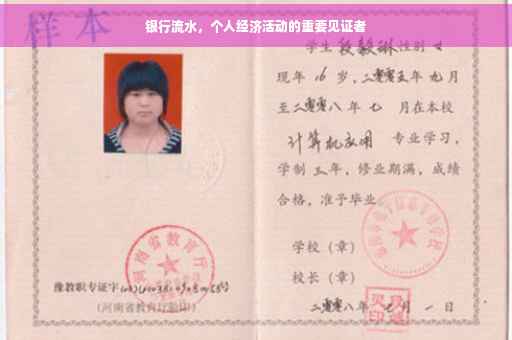 银行流水，个人经济活动的重要见证者
样本
学生段毅琳性别女
现年16岁，二零零五年九月
至二零零八年七月在本校
计算机应用 专业学习，
学制三年，修业期满，成绩
合格，准予毕业
学校（章）
校长（章）
二零零八年 月一日
河南省教育厅
豫教职专证字
（河南省教育厅验印）